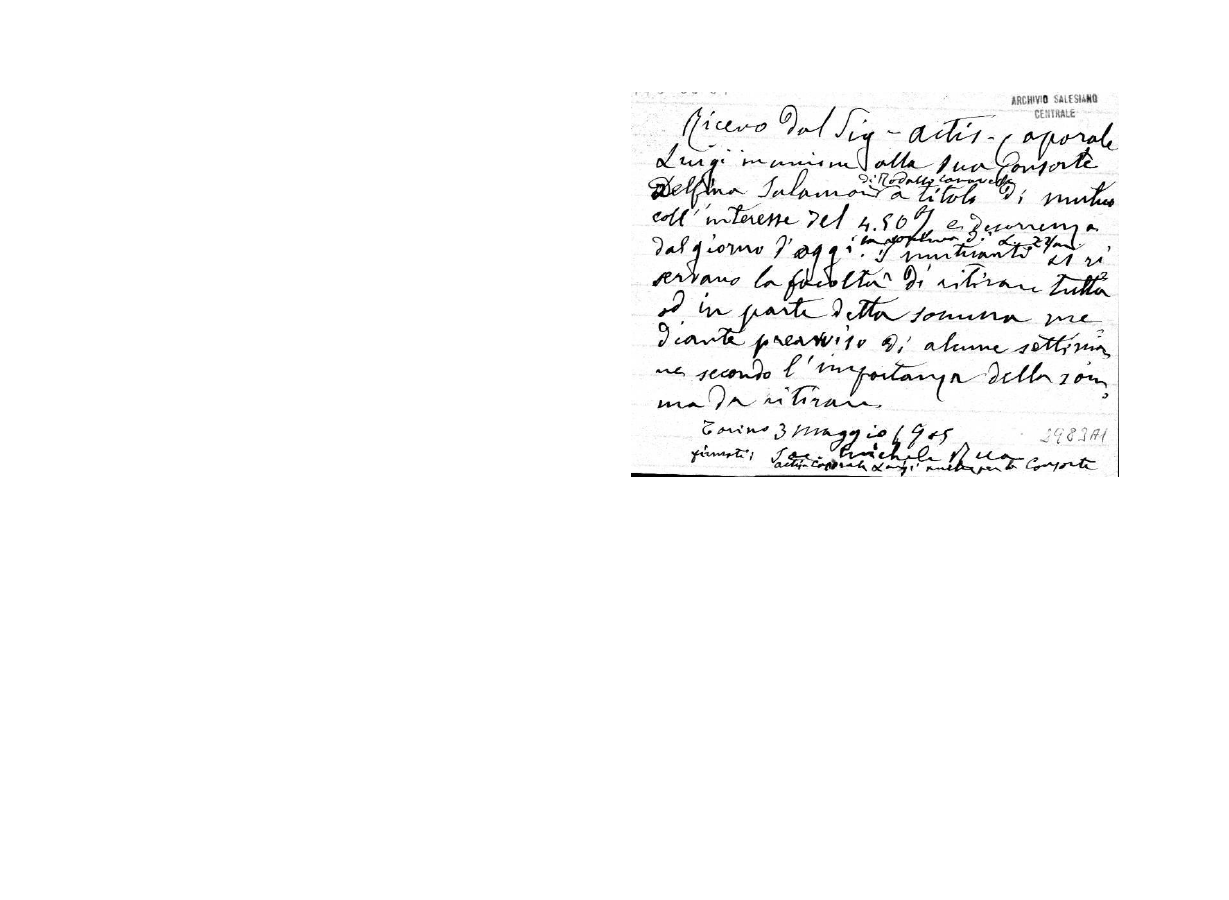 ARCHIVIO SALESIANO
CENTRALE
Ricevo dal Sig - Actis - Caporale
Luigi alla sua Consorte
Delfina a titolo di mutuo
coll'interesse del 4.50 % e decorrenza
dal giorno d'oggi. I mutuanti si ri
servano la facoltà di ritirare tutta
od in parte detta somma me
diante preavviso di alcune settima
ne secondo l'importanza della som
ma da ritirare.
Torino 3 Maggio 1905
2983A1
firmati: Sac. Michele Rua
Actis Caporale Luigi anche per la Consorte